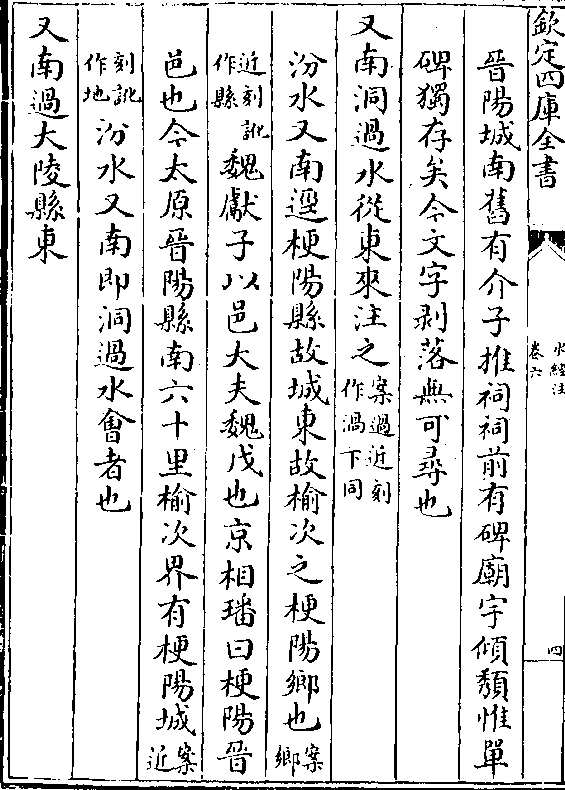 欽定四庫全書
水經注
卷六
四
晉陽城南舊有介子推祠祠前有碑廟宇傾頽惟單
碑獨存矣今文字剥落無可尋也
又南洞過水從東來注之案過近刻作渦下同
汾水又南逕梗陽縣故城東故榆次之梗陽鄉也案鄉
近刻訛作縣魏獻子以邑大夫魏戊也京相璠曰梗陽晉
邑也今太原晉陽縣南六十里榆次界有梗陽城案近
刻訛作地汾水又南即洞過水會者也
又南過大陵縣東